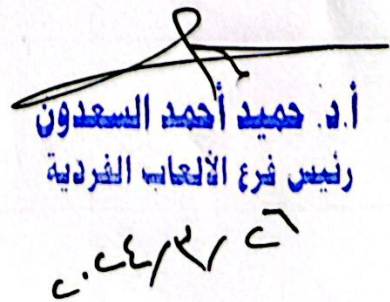 أ.د. حميد أحمد السعدون
رئيس فرع الألعاب الفردية
٢٠٢٤/٣/٢٦